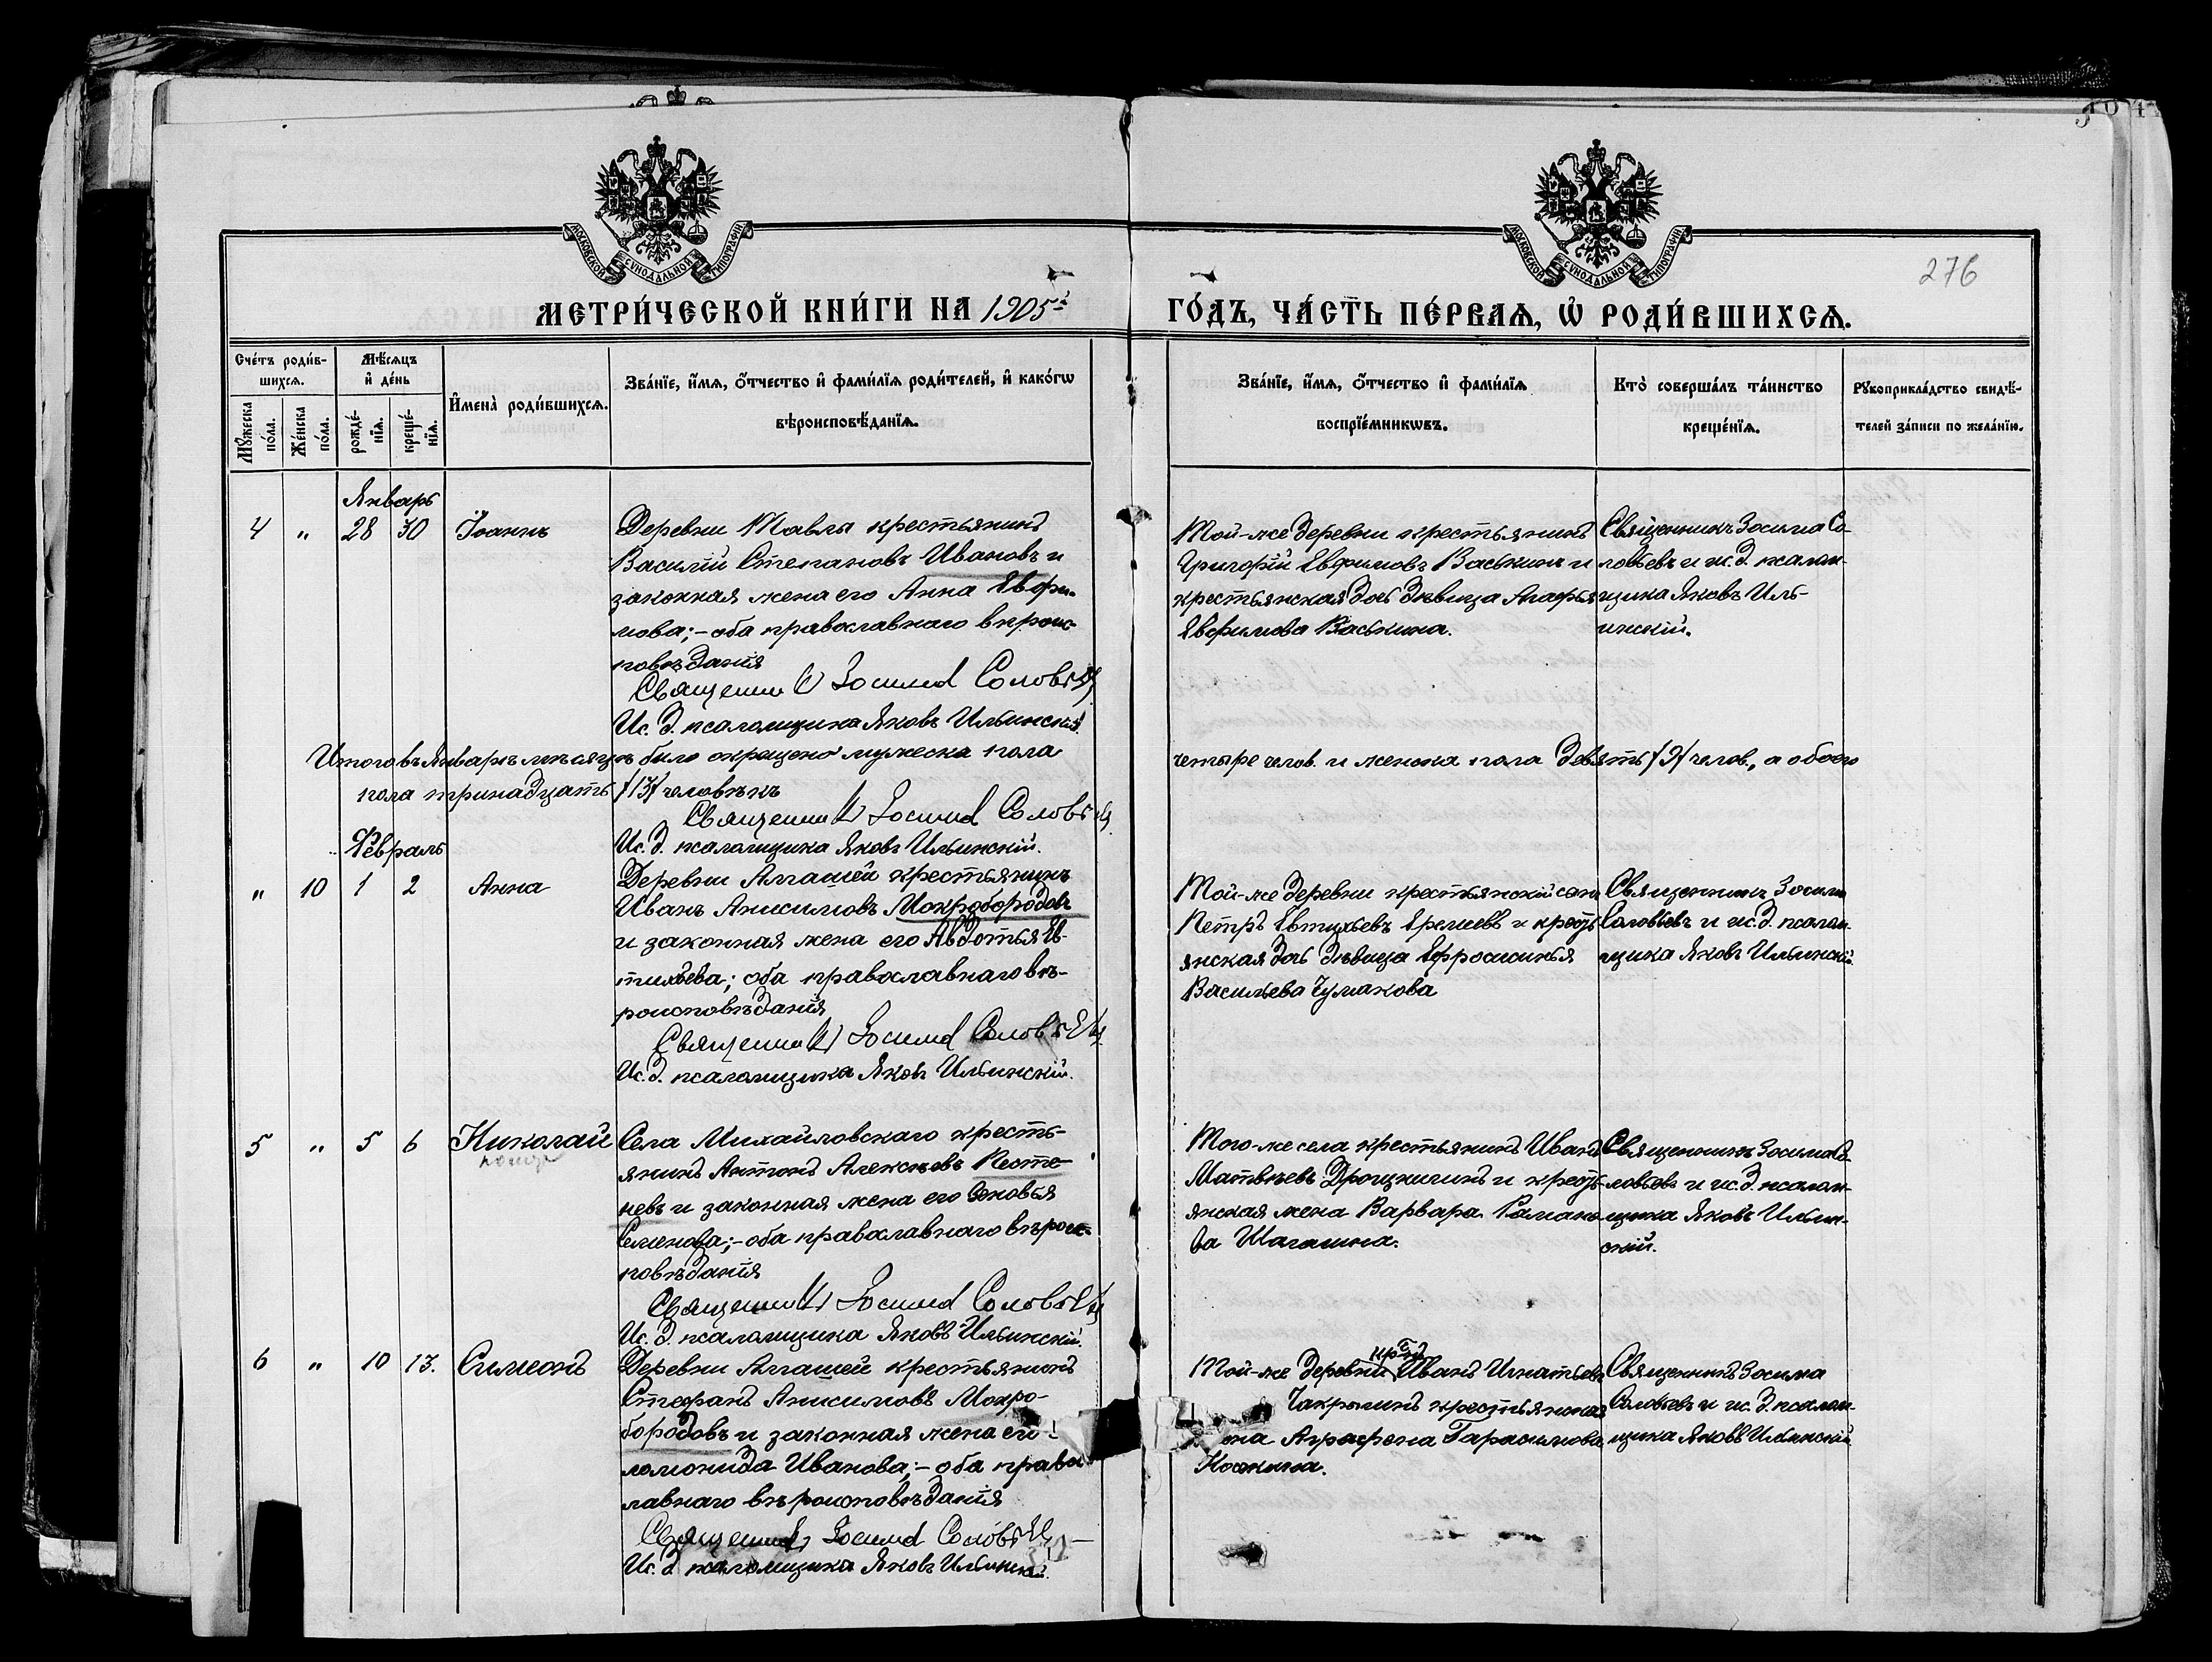 МОСКОВСКОЙ СѴНОДАЛЬНОЙ ТИПОГРАФІИ
МОСКОВСКОЙ СѴНОДАЛЬНОЙ ТИПОГРАФІИ
276
МЕТРИ́ЧЕСКОЙ КНИ́ГИ НА 1905й
ГО́ДЪ, ЧА́СТЬ ПЕ́РВАѦ, Ѡ РОДИ́ВШИХСѦ.
Сче́тъ роди́в-
шихсѧ.
Мѣ́сѧцъ
и҆ де́нь
Мꙋ́жеска
по́ла.
Же́нска
по́ла.
рожде́-
нїѧ.
креще́-
нїѧ.
И҆мена̀ роди́вшихсѧ.
Зва́нїе, и҆́мѧ, ѻ҆́тчество и҆ фами́лїѧ роди́телей, и҆ како́гѡ
вѣроисповѣ́данїѧ.
Зва́нїе, и҆́мѧ, ѻ҆́тчество и҆ фами́лїѧ
воспрїе́мникѡвъ.
Кто̀ соверша́лъ та́инство
креще́нїѧ.
Рꙋкоприкла́дство свидѣ́-
телей за́писи по жела́нїю.
Январь
4 " 28 30 Іоаннъ
Деревни Тавлы крестьянинъ
Василій Степановъ Ивановъ и
законная жена его Анна Евфи-
мова;-оба православнаго вѣроис-
повѣданія
Священникъ Зосима Соловьевъ
Ис. д. псаломщика Яковъ Ильинскій
Той-же деревни крестьянинъ
Григорій Евфимовъ Васькинъ и
крестьянская дочь дѣвица Агафья
Евфимова Васькина.
Священникъ Зосима Со-
ловьевъ и ис. д. псалом-
щика Яковъ Иль-
инскій.
Итого въ Январѣ мѣсяцѣ было окрещено мужеска пола четыре челов. и женска пола девять /9/ челов., а обоего
пола тринадцать /13/ человѣкъ
Священникъ Зосима Соловьевъ
Ис. д. псаломщика Яковъ Ильинскій.
Февраль
" 10 1 2 Анна
Деревни Алгашей крестьянинъ
Иванъ Анисимовъ Мокробородовъ
и законная жена его Авдотья Ев-
тихьева; оба православнаго вѣ-
роисповѣданія
Священникъ Зосима Соловьевъ
Ис. д. псаломщика Яковъ Ильинскій.
Той-же деревни крестьянскій сынъ
Петръ Евтихьевъ Еремеевъ и кресть-
янская дочь дѣвица Ефросинья
Васильева Чумакова
Священникъ Зосима
Соловьевъ и ис. д. псалом-
щика Яковъ Ильинскій.
5 " 5 6 Николай
Села Михайловскаго кресть-
янинъ Антонъ Алексѣевъ Песте-
невъ и законная жена его Зиновья
Семенова;-оба православнаго вѣроис-
повѣданія
Священникъ Зосима Соловьевъ
Ис. д. псаломщика Яковъ Ильинскій.
Того-же села крестьянинъ Иванъ
Матвѣевъ и кресть-
янская жена Варвара Романо-
ва Шагашина.
Священникъ Зосима Со-
ловьевъ и ис. д. псалом-
щика Яковъ Ильин-
скій.
6 " 10 13. Симеонъ
Деревни Алгашей крестьянинъ
Стефанъ Анисимовъ Мокро-
бородовъ и законная жена его
ломонида Иванова;-оба право
лавнаго вѣроисповѣданія
Священникъ Зосима Соловьевъ
Ис. д. псаломщика Яковъ Ильинскій.
Той-же деревни Иванъ Игнатьевъ
Чакрынинъ крестьянская
она Аграфена Гарасимова
Кошкина.
Священникъ Зосима
Соловьевъ и ис. д. псалом-
щика Яковъ Ильинскій